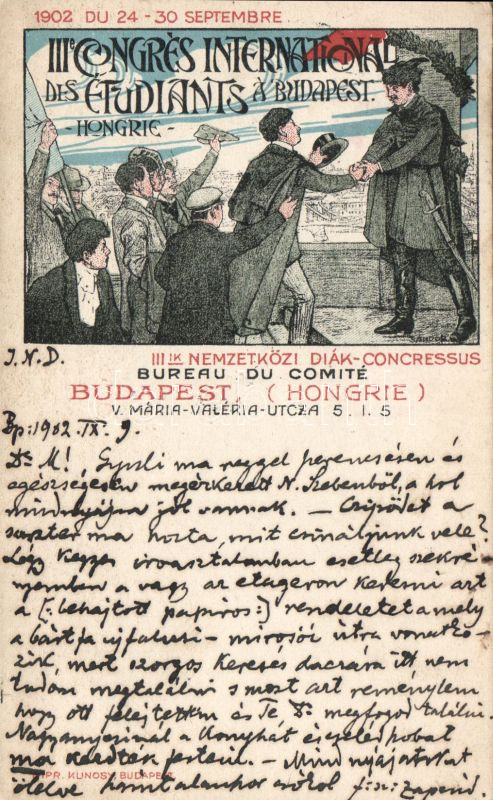 1902 DU 24-30 SEPTEMBRE
IIIe CONGRÈS INTERNATIONAL
DES ÉTUDIANTS À BUDAPEST.
-HONGRIE-
J.N.D.
IIIIK NEMZETKÖZI DIÁK-CONCRESSUS
BUREAU DU COMITÉ
BUDAPEST, (HONGRIE)
V. MÁRIA-VALÉRIA-UTCZA 5. I. 5
Bp: 1902 IX. 9.
Dr M! Gyuszi ma reggel és
egészségesen megérkezett N. Szebenből, a hol
mindnyájan jól vannak. – Czipődet a
ma hozta, mit csináljunk vele?
Légy kegyes iroasztalomban esetleg szekré
nyemben a vagy az etageron keresni azt
a [: behajtott papiros :] rendeletet a mely
a bártfa ujfalusi – útra vonatko-
zik, mert szorgos keresés daczára itt nem
tudom megtalálni s most azt reménylem
hogy ott felejtettem és Te Dr megfogod találni.
Nagyanyjával a konyhát és cselédszobát
ma kezdték festeni. – Mindnyájatokat
ölelve
IPR. KUNOSY, BUDAPEST